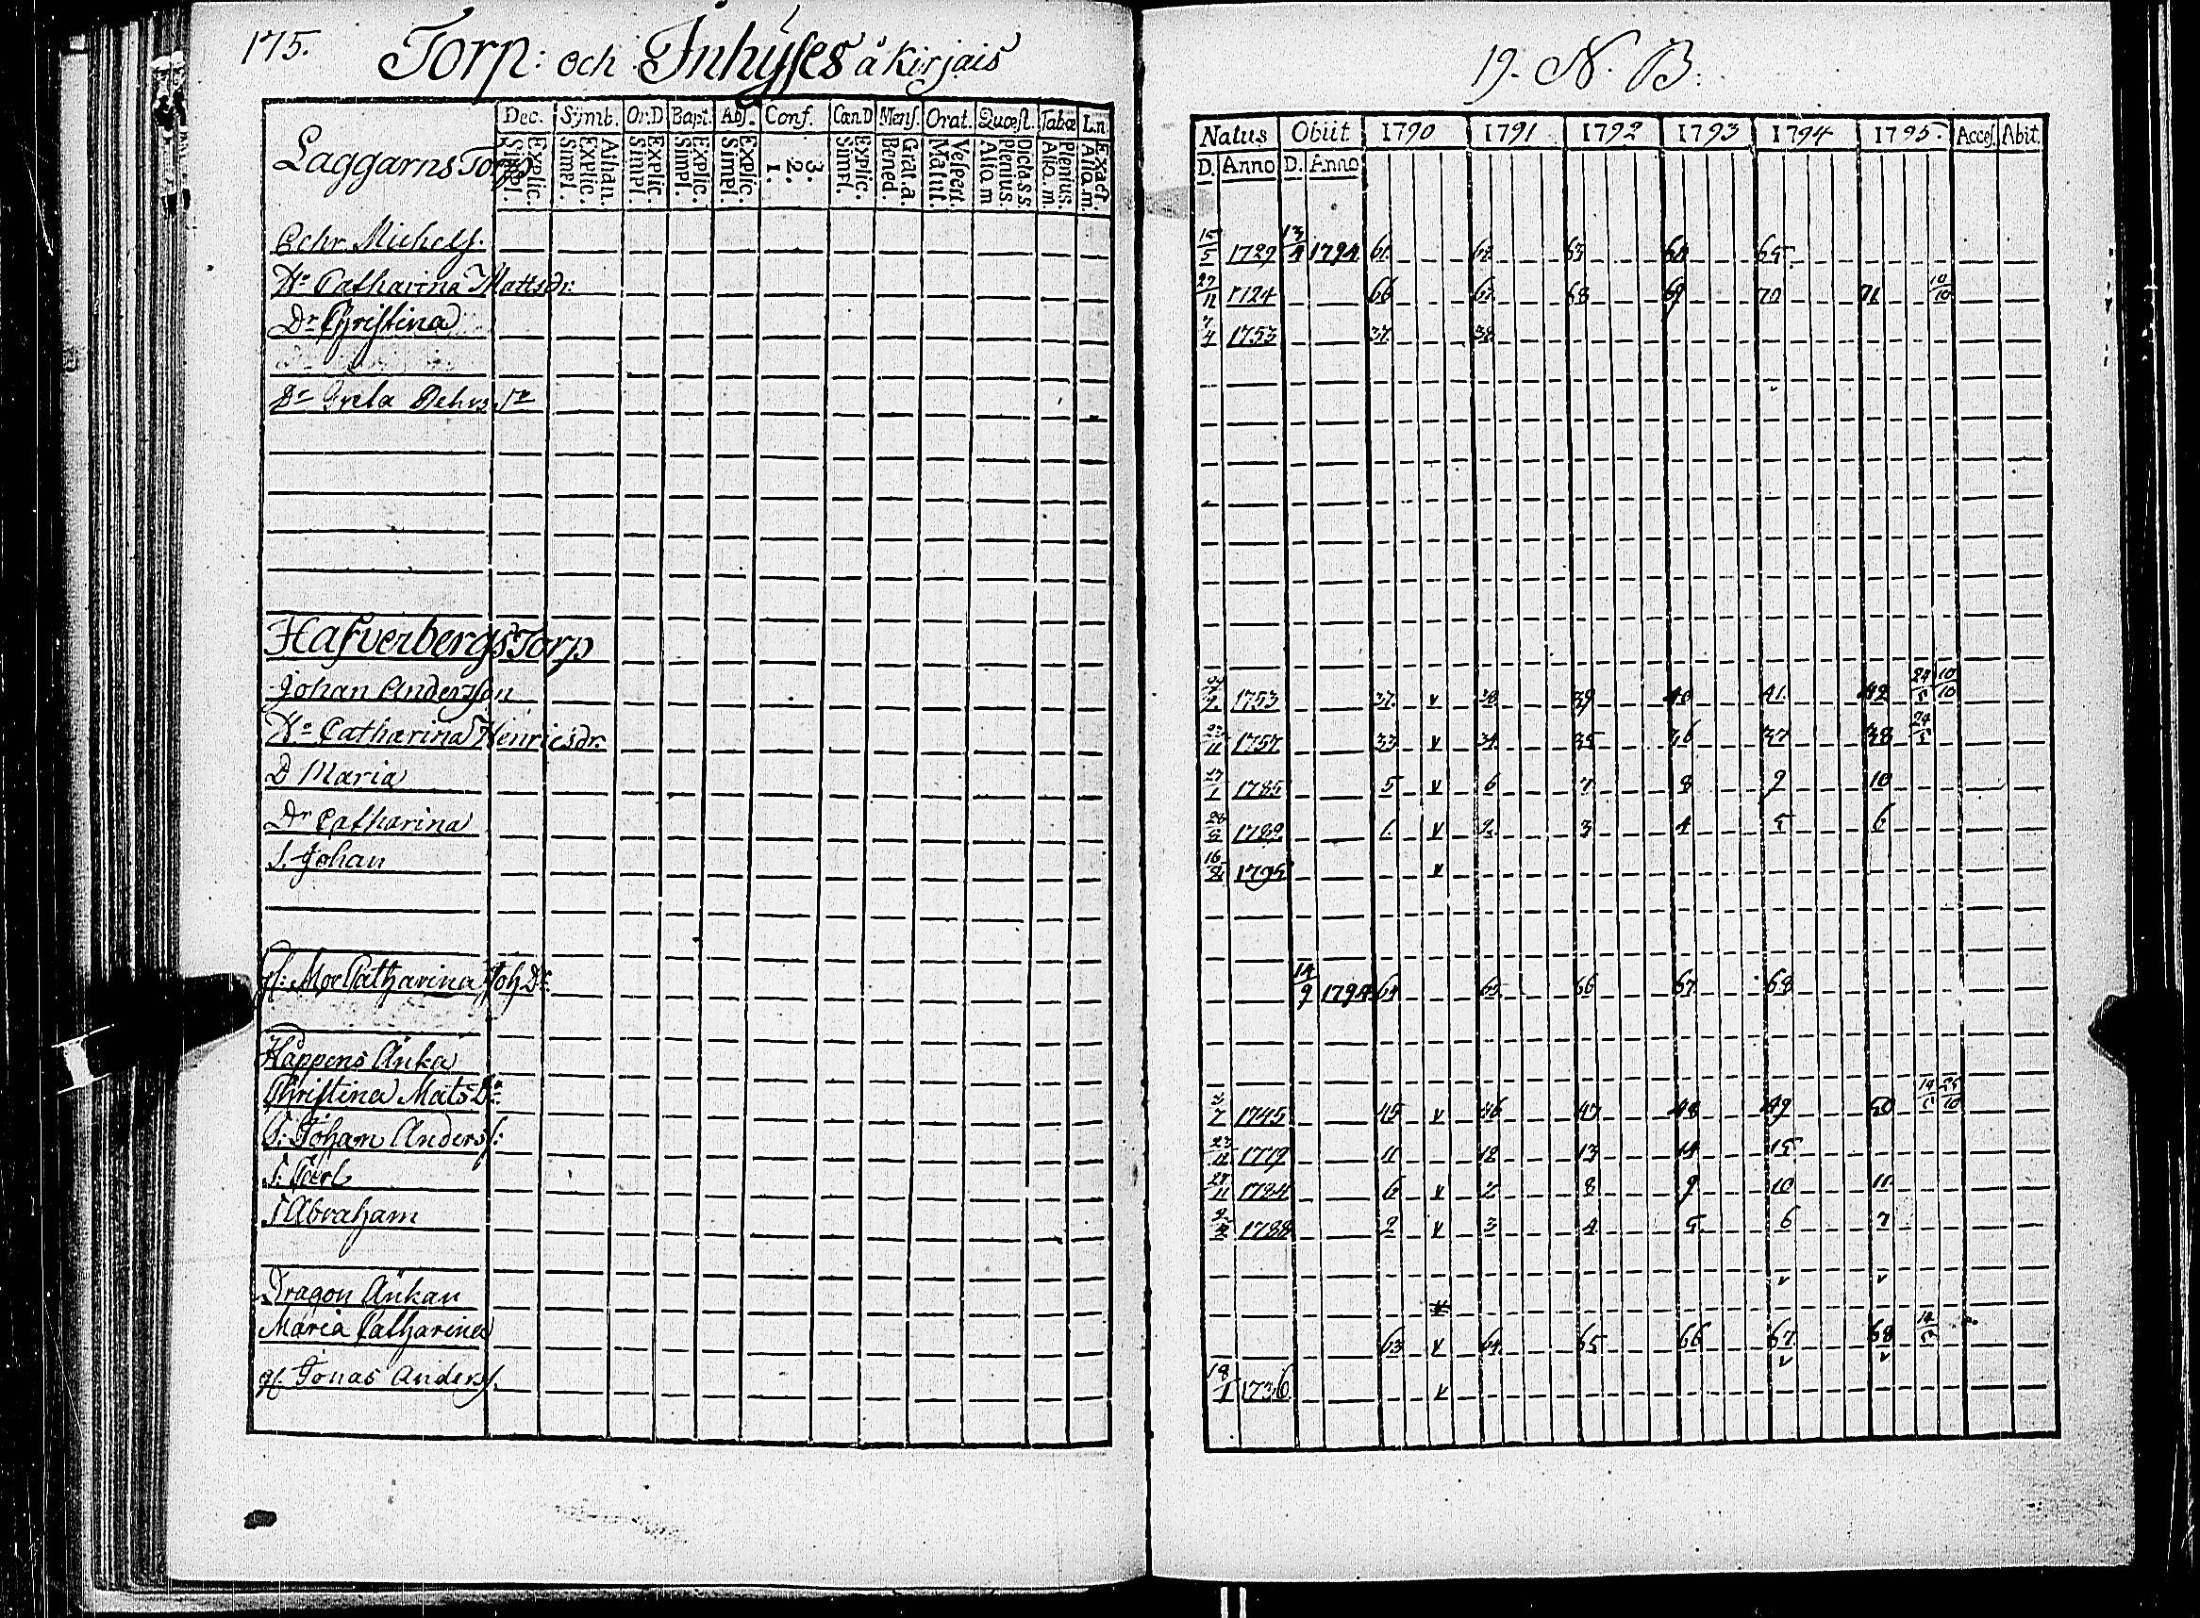 175. Torp: och Inhyses å Kirjais
Dec. Symb. Or.D Bapt. Abs. Conf. Cœn.D Mens. Orat. Quœst. Tabœ L.n.
Laggarns Torp
Simpl. Explic. Simpl. Explic. Athan. Simpl. Explic. Simpl. Explic. Simpl. Explic. 1. 2. 3. Simpl. Explic. Bened. Grat.a. Matut. Vespert. Alio.m Plenius. Dicta.s.s Alio.m. Plenius. Alio.m. Exact.
Pehr Michels.
H:o Catharina Mattsdr.
Dr Christina
Dr Greta Pehrs
Hafverbergs Torp
Johan Andersson
H:o Catharina Henricsdr.
D Maria
Dr Catharina
S. Johan
gl: Mor Catharina Joh Dr.
Happens Änka
Christina Mats Dr.
S. Johan Anders s:
S. Carl
S Abraham
Dragon Änkan
Maria Catharina
gl. Jonas Anders s.
19. N. B.
Natus Obiit 1790 1791 1792 1793 1794 1795. Acces. Abit.
D. Anno D. Anno
15/5 1729 13/4 1794 61. 62. 63 64 65.
1724 66 67. 68 69 70 71 10/10
7/4 1753 37. 38.
1753 37. v 38. 39 40 41. 42 24/5 10/10
23/11 1757 33 v 34. 35 36 37 38 24/5
27/1 1785 5 v 6 7 8 9 10
1789 1. v 2. 3 4 5 6
1795 v
14/9 1794 64 65. 66 67. 68
1745 45 v 46 47 48 49 50
23/12 1779 11 12 13 14 15
28/11 1784 6 v 7 8 9 10 11.
1788 2 v 3 4 5 6 7
v v
63 v 64. 65 66 67. 68
v v
18/1 1736 v